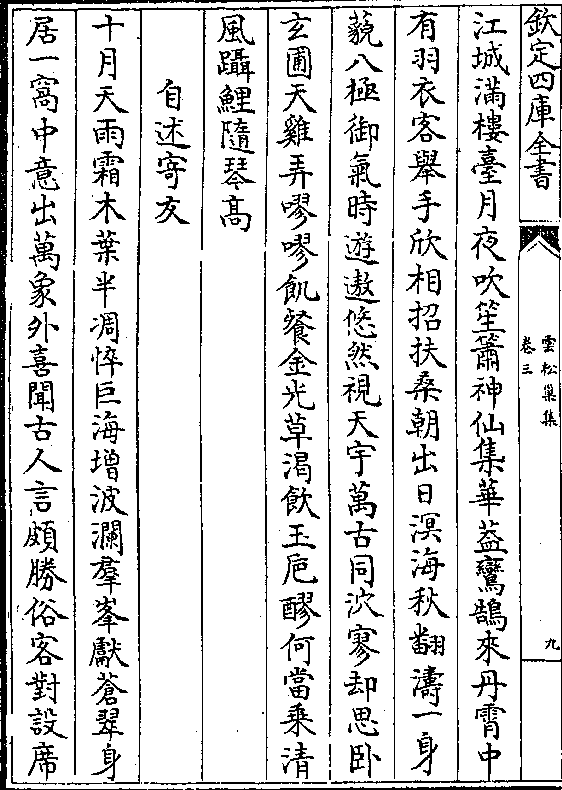 欽定四庫全書
雲松巢集
卷三
九
江城滿樓臺月夜吹笙簫神仙集華葢鸞鵠來丹霄中
有羽衣客舉手欣相招扶桑朝出日溟海秋翻濤一身
藐八極御氣時遊遨悠然視天宇萬古同泬寥却思卧
玄圃天雞弄嘐嘐飢餐金光草渴飲玉巵醪何當乗清
風躡鯉隨琴髙
自述寄友
十月天雨霜木葉半凋悴巨海增波瀾羣峯獻蒼翠身
居一窩中意出萬象外喜聞古人言頗勝俗客對設席